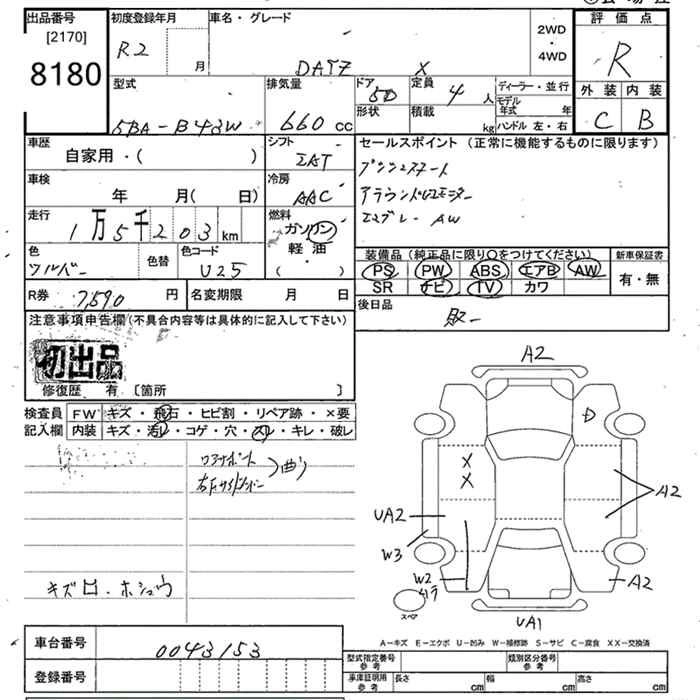 出品番号
[2170]
8180
初度登録年月
R2
月
車名・グレード
DAYZ X
2WD
・
4WD
評価点
R
外装 内装
C B
型式
5BA-B43W
排気量
660 cc
ドア
5D
形状
定員
4 人
積載
kg
ディーラー・並行
モデル年式 年
ハンドル 左・右
車歴
自家用・( )
シフト
IAT
セールスポイント (正常に機能するものに限ります)
プッシュスタート
アラウンドビューモニター
エマブレ・AW
車検
年 月( 日)
冷房
AAC
走行
1万5千203 km
燃料
ガソリン
軽油
・
( )
色
シルバー
色替
色コード
U25
装備品 (純正品に限り○をつけてください)
PS PW ABS エアB AW
SR ナビ TV カワ
新車保証書
有・無
R券 7,590 円
名変期限 月 日
後日品
取一
注意事項申告欄(不具合内容等は具体的に記入して下さい)
初出品
修復歴 有 〔箇所 〕
検査員
記入欄
FW キズ・飛石・ヒビ割・リペア跡・×要
内装 キズ・汚レ・コゲ・穴・スレ・キレ・破レ
コアサポート
右Fサイドメンバー
曲り
キズ凹・ホシュウ
A2
D
X
X
A2
UA2
W3
W2
A2
UA1
スペア
A-キズ E-エクボ U-凹み W-補修跡 S-サビ C-腐食 XX-交換済
車台番号
0043153
登録番号
型式指定番号
参考
類別区分番号
参考
車庫証明用
参考
長さ cm 幅 cm 高さ cm